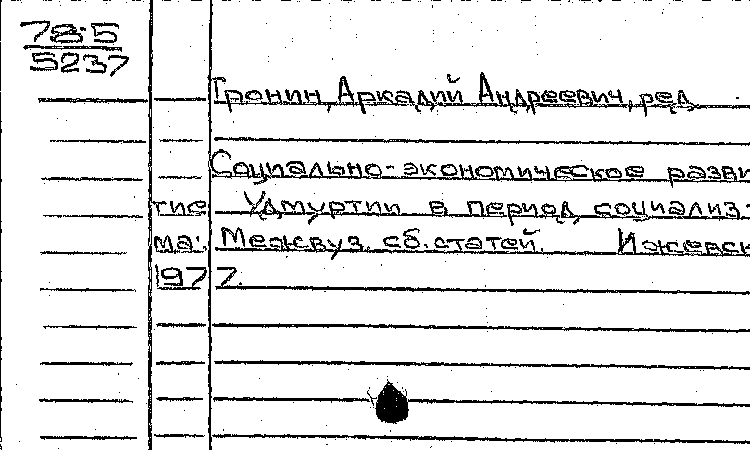 78-5
5237
Тронин, Аркадий Андреевич, ред.
Социально-экономическое разви
тие Удмуртии в период социализ-
ма: Межвуз. сб. статей. Ижевск
1977.